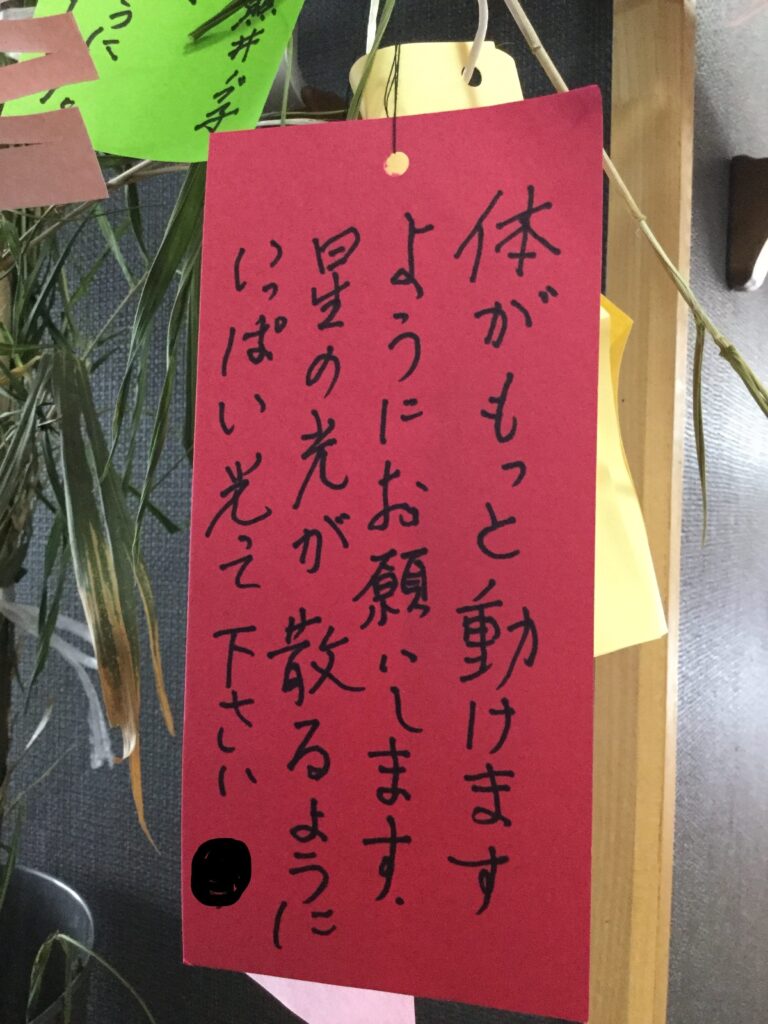 体がもっと動けます
ようにお願いします.
星の光が散るように
いっぱい光って下さい
うに